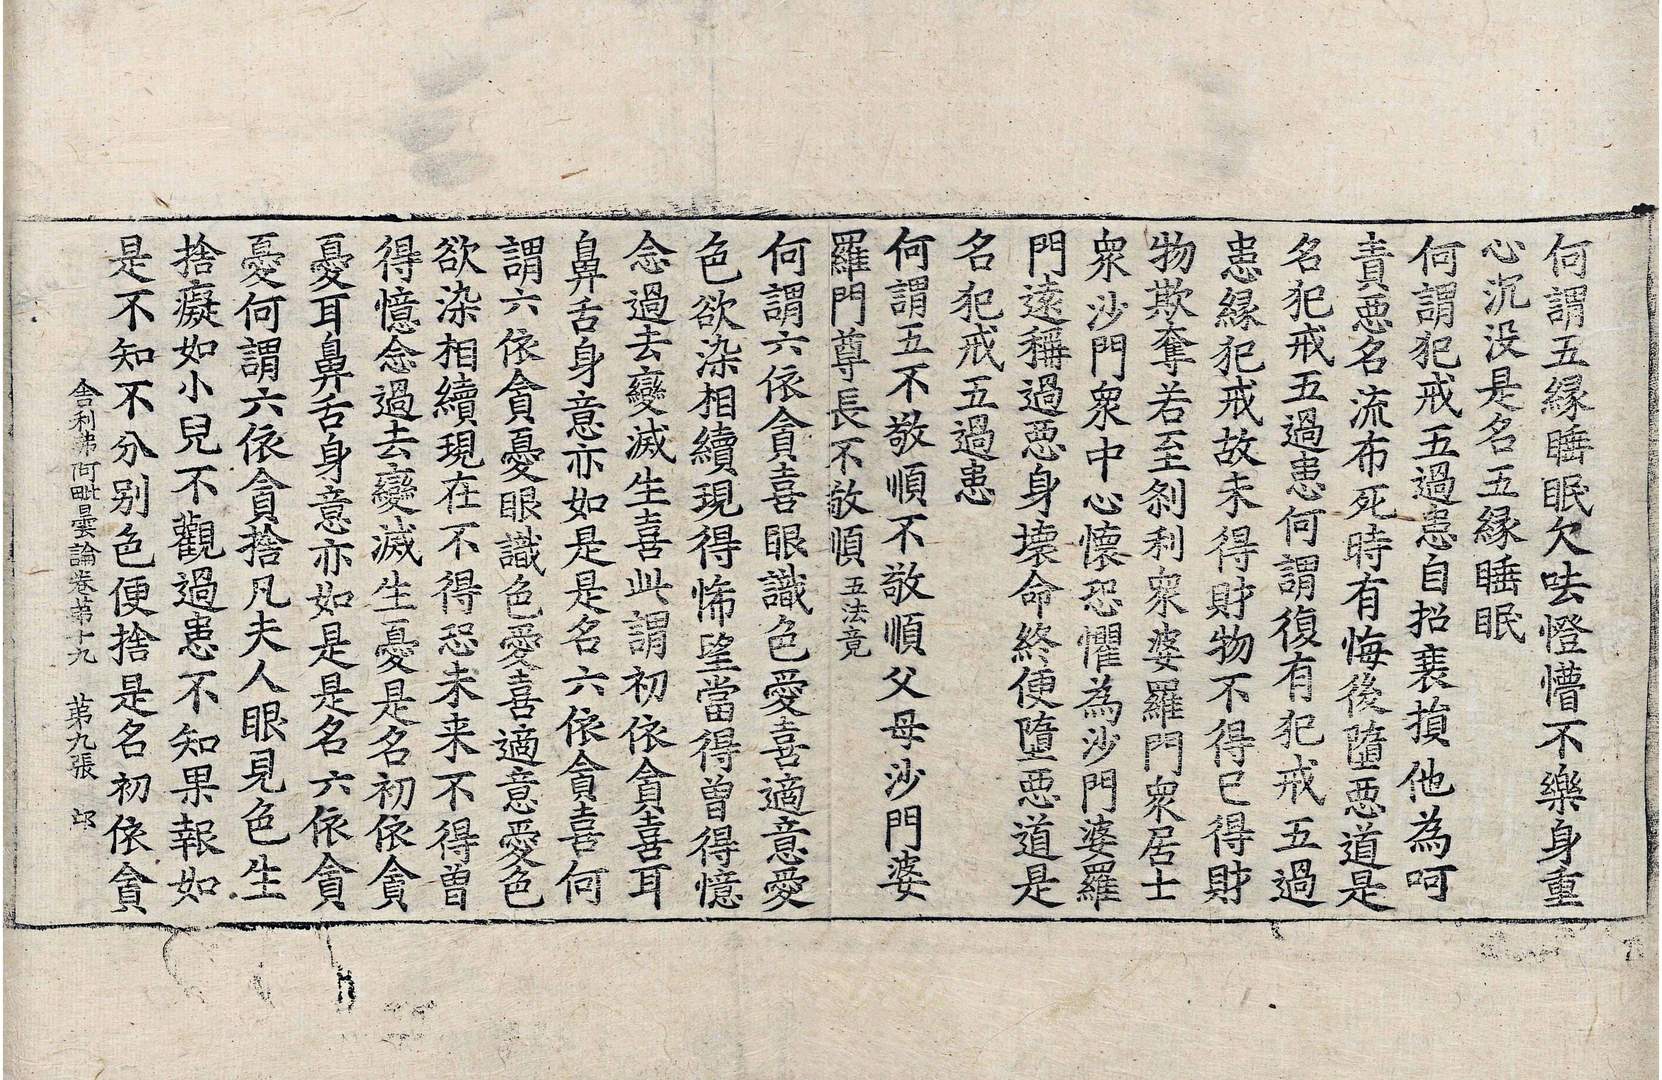 何謂五緣睡眠欠呿憕懵不樂身重
心沉没是名五緣睡眠
何謂犯戒五過患自招衰損他為呵
責惡名流布死時有悔後墮惡道是
名犯戒五過患何謂復有犯戒五過
患緣犯戒故未得財物不得已得財
物欺奪若至剎利衆婆羅門衆居士
衆沙門衆中心懷恐懼為沙門婆羅
門遠稱過惡身壞命終便墮惡道是
名犯戒五過患
何謂五不敬順不敬順父母沙門婆
羅門尊長不敬順五法竟
何謂六依貪喜眼識色愛喜適意愛
色欲染相續現得悕望當得曾得憶
念過去變滅生喜此謂初依貪喜耳
鼻舌身意亦如是是名六依貪喜何
謂六依貪憂眼識色愛喜適意愛色
欲染相續現在不得恐未来不得曾
得憶念過去變滅生憂是名初依貪
憂耳鼻舌身意亦如是是名六依貪
憂何謂六依貪捨凡夫人眼見色生
捨癡如小兒不觀過患不知果報如
是不知不分别色便捨是名初依貪
舍利弗阿毗曇論卷第十九　第九張